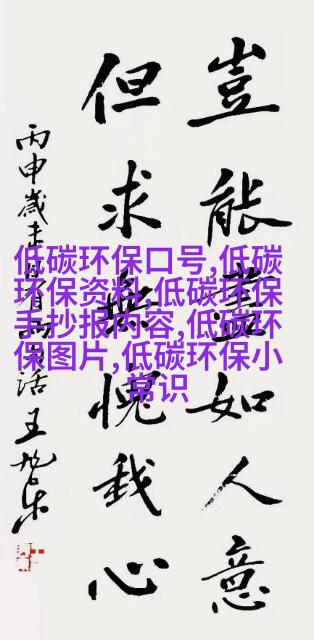 豈能盡如人意
但求無愧我心
丙申歲 王旭东
低碳环保口号,低碳
环保资料,低碳环保
手抄报内容,低碳环
保图片,低碳环保小
常识